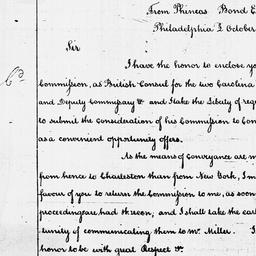 From Phineas Bond E
Philadelphia 2 October
Sir
I have the honor to enclose yo
Commission, as British Consul for the two Carolina
and Deputy Commissary & and I take the Liberty of req
to submit the consideration of his Commission to Con
as a convenient opportunity offers.
As the means of Conveyance are m
from hence to Charleston than from New York, I m
favour of you to return the Commission to me, as soon
proceedings are had thereon, and I shall take the earl
tunity of communicating them to Mr. Miller. I
honor to be with great Respect &c.